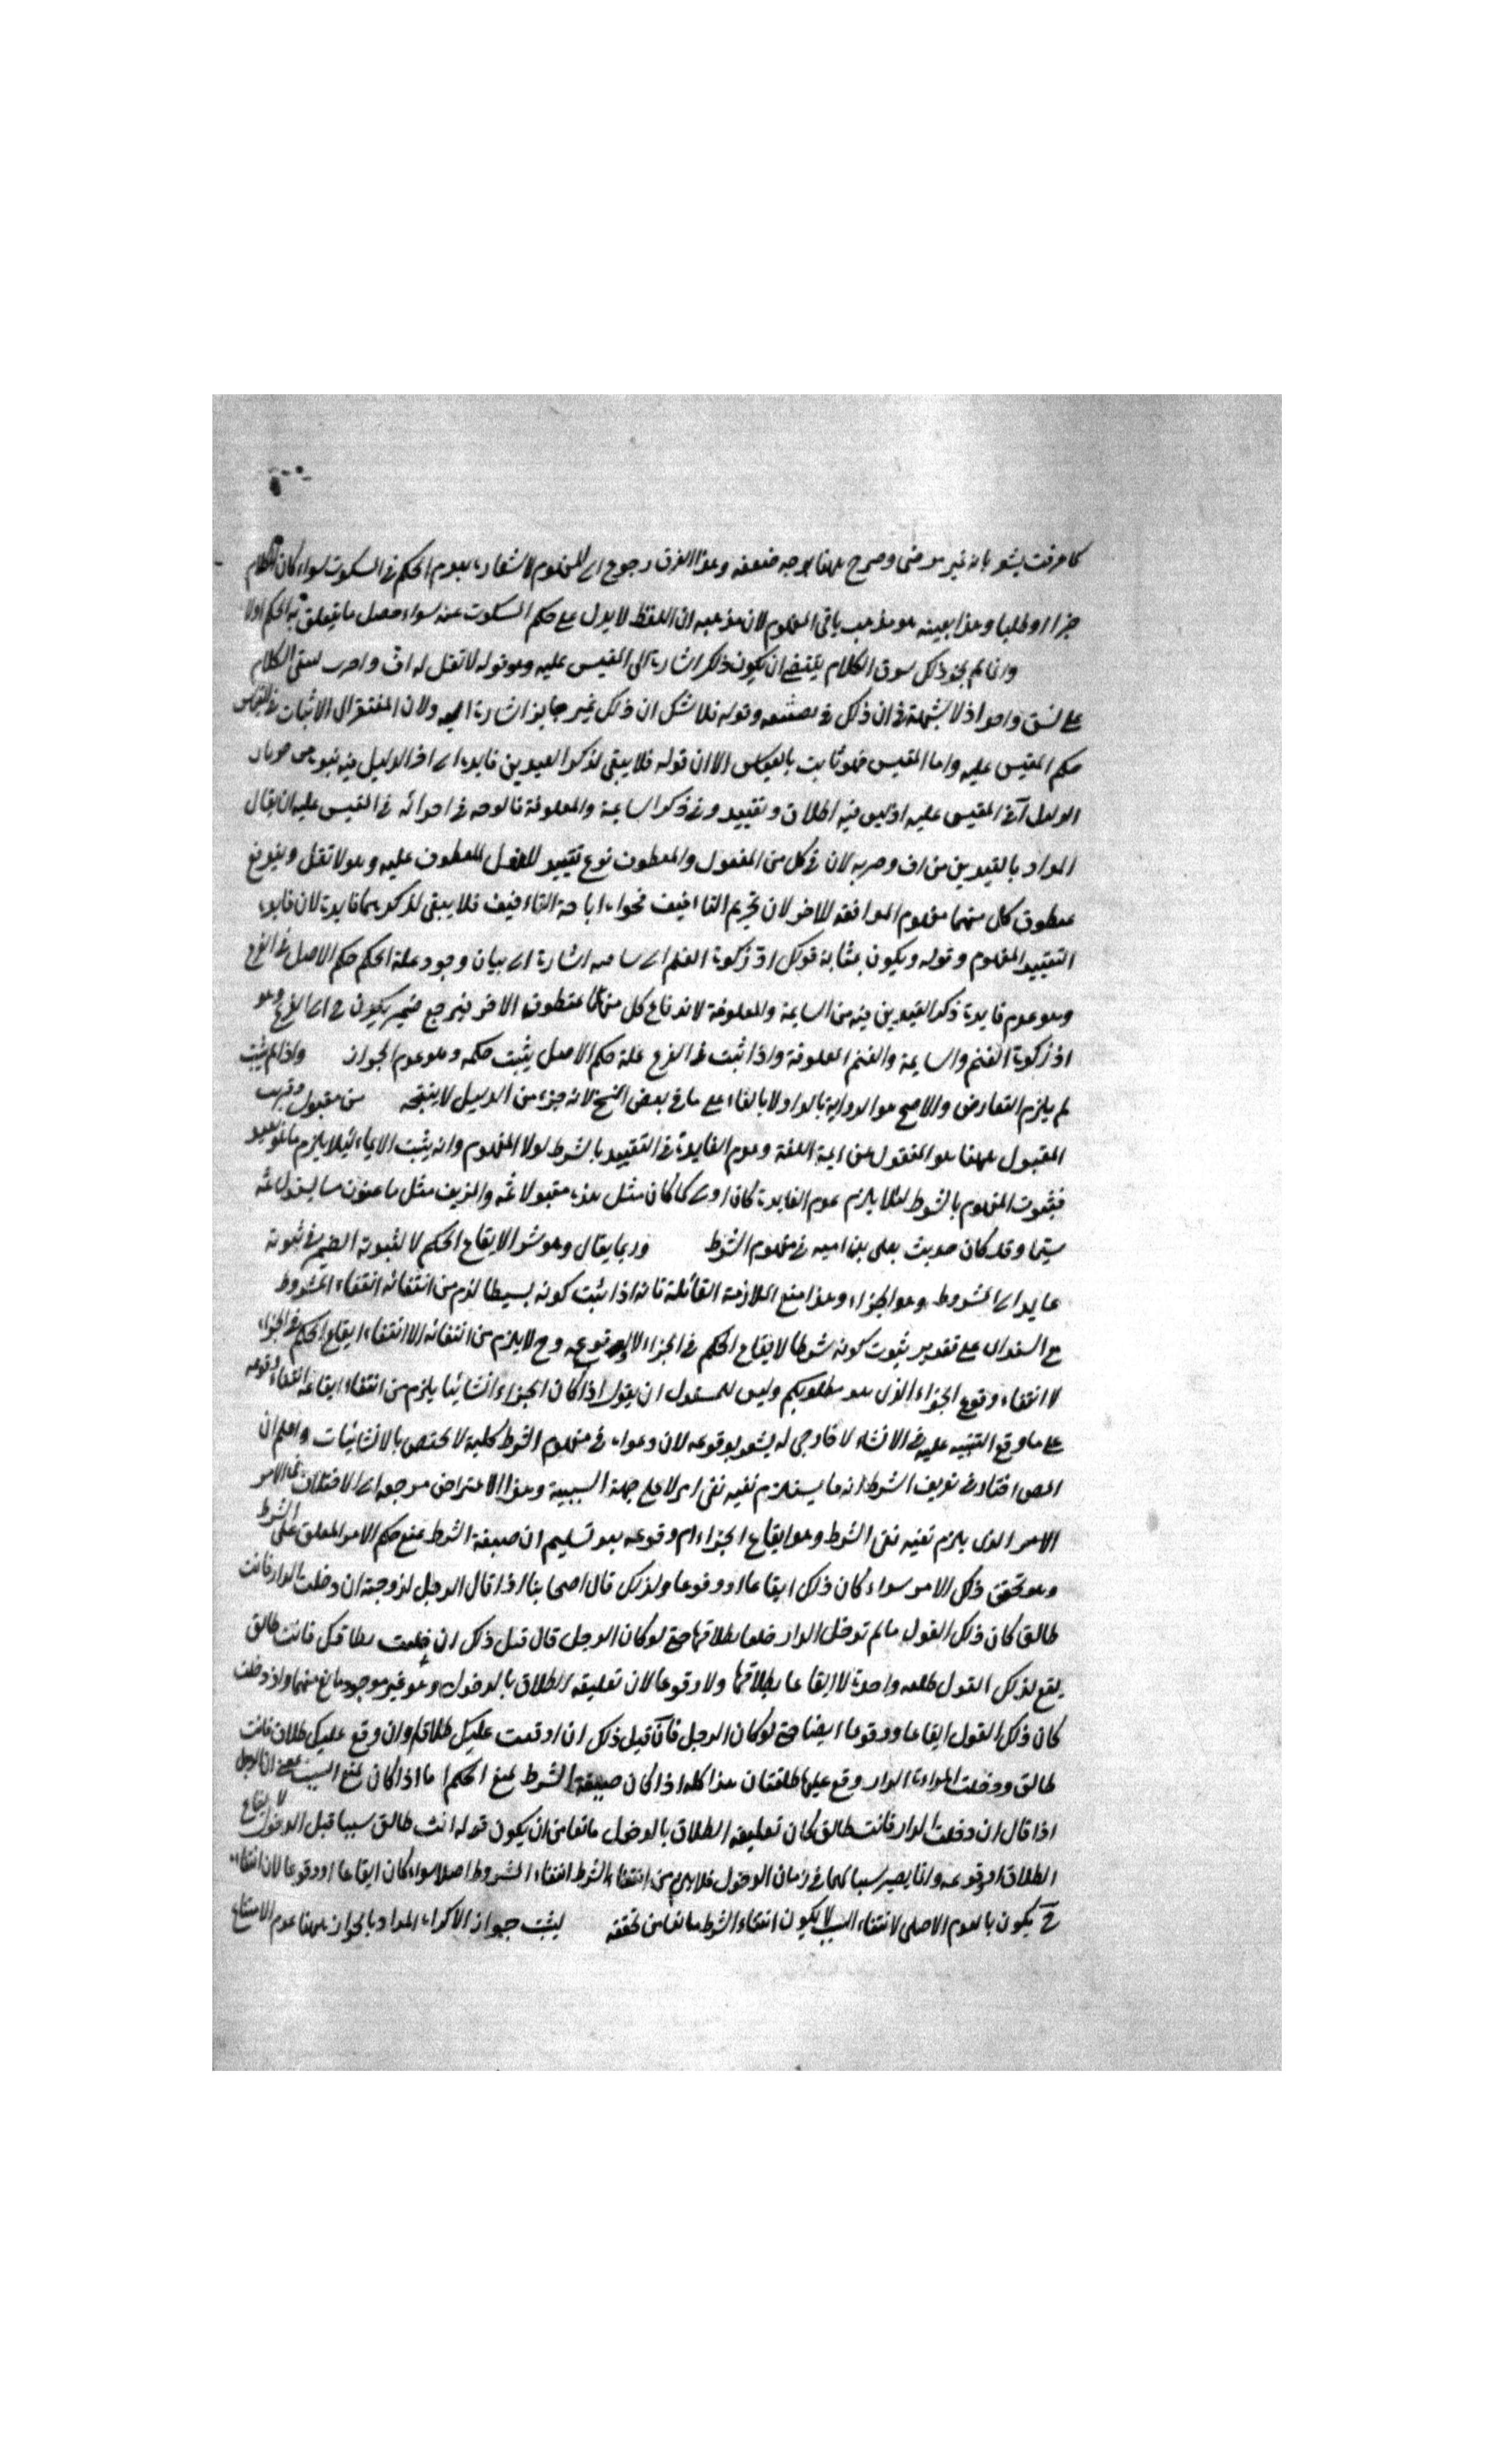 كما عرفت يشعر بانه غير مرضى وصرح ههنا بوجه ضعفه وهذا الفرق رجوع الى المفهوم لاشعاره بعدم الحكم في السكوت سواء كان الكلام
خبرا او طلبا وهذا بعينه هو مذهب باقي المفهوم لان مذهبه ان اللفظ لا يدل على حكم المسكوت عنه سواء حصل ما يتعلق به الحكم اولا
وانما لم يجز ذلك سوق الكلام يقتضي ان يكون ذلك اشارة الى المقيس عليه وهو قوله لا تقل له اف واضرب لسقى الكلام
على نسق واحد اذ لا شبهة في ان ذلك في وقوله فلا شك ان ذلك غير جايز اشارة اليه ولان المفتقر الى الاثبات في القياس
حكم المقيس عليه واما المقيس فهو ثابت بالقياس الا ان قوله فلا يبقى لذكر القيدين فايدة الى اخر الدليل فيه نبو عن جريان
الدليل في المقيس عليه اذ ليس فيه اطلاق وتقييد وفي ذكر السايمة والمعلوفة فالوجه في اجرائه في المقيس عليه ان يقال
المراد بالقيدين من اف وضربه لان في كل من المفعول والمعطوف نوع تقييد للفعل المعطوف عليه وهو لا تقل
منطوق كل منهما مفهوم الموافقة للاخر لان تحريم التافيف فحواه اباحة التافيف فلا يبقى لذكرهما فايدة لان فايدة
التقييد المفهوم وقوله ويكون بمثابة قولك اد زكوة الغنم الى اشارة الى بيان وجود علة الحكم حكم الاصل في الفرع
وهو عدم فايدة ذكر القيدين فيه من السايمة والمعلوفة لاندفاع كل منهما بمنطوق الاخر فيرجع ضمير يكون ح الى الفرع وهو
اد زكوة الغنم والسايمة والغنم المعلوفة واذا ثبت في الفرع علة حكم الاصل يثبت حكمه وهو عدم الجواز واذا لم يثبت
لم يلزم التعارض والاصح هو الرواية بالواو لا بالفاء على ما في بعض النسخ لانه جزء من الدليل لا ينتجه من مقبول وقريب
المقبول ههنا هو المنقول عن ايمة اللغة وعدم الفايدة في التقييد بالشرط لولا المفهوم وانه يثبت الايماء لئلا يلزم ما هو بعيد
فثبوت المفهوم بالشرط لئلا يلزم عدم الفايدة كان اولى كما كان مثل هذه مقبولا ثمه والمزيف مثل ما عنون ثمه
سيما وقد كان حديث يعلى بن اميه في مفهوم الشرط وربما يقال وهو شرط لايقاع الحكم لا لثبوته الضمير في ثبوته
عايد الى المشروط وهو الجزاء وهذا منع الملازمة القائلة بانه اذا ثبت كونه بسيطا لزم من انتفائه انتفاء المشروط
مع السندان على تقدير ثبوت كونه شرطا لايقاع الحكم في الجزاء لا لوقوعه وح لا يلزم من انتفائه الا انتفاء ايقاع الحكم في الجزاء
لا انتفاء وقوع الجزاء الذى هو مطلوبكم وليس للمستدل ان يقول اذا كان الجزاء انشائيا يلزم من انتفاء ايقاعه انتفاء وقوعه
على ما وقع التنبيه عليه في الانشاء لا خارجي له يشعر بوقوعه لان دعواه في مفهوم الشرط كلية لا تختص بالانشائيات واعلم ان
المص اختار في تعريف الشرط انه ما يستلزم نفيه نفى امر لا على جهة السببية وهذا الاعتراض مرجعه الى الاختلاف في الامر
الامر الذى يلزم نفيه نفى الشرط وهو ايقاع الجزاء ام وقوعه بعد تسليم ان صيغة الشرط تمنع حكم الامر المعلق على الشرط
وهو تحقق ذلك الامر سواء كان ذلك ايقاعا او وقوعا ولذلك قال اصحابنا اذا قال الرجل لزوجته ان دخلت الدار فانت
طالق كان ذلك القول ما لم تدخل الدار حلفا بطلاقها حتى لو كان الرجل قال قبل ذلك ان حلفت بطلاقك فانت طالق
يقع لذلك القول طلقه واحدة لا ايقاعا بطلاقها ولا وقوعا لان تعليقه الطلاق بالدخول وهو غير موجود مانع منهما واذا دخلت
كان ذلك القول ايقاعا ووقوعا ايضا حتى لو كان الرجل قال قبل ذلك ان اوقعت عليك طلاقا وان وقع عليك طلاق فانت
طالق ودخلت المراة الدار وقع عليها طلقتان هذا كله اذا كان صيغة الشرط تمنع الحكم اما اذا كان تمنع السبب بمعنى ان الرجل
اذا قال ان دخلت الدار فانت طالق كان تعليقه الطلاق بالدخول مانعا من ان يكون قوله انت طالق سببا قبل الدخول لايقاع
الطلاق او وقوعه وانما يصير سببا لهما في زمان الدخول فلا يلزم من انتفاء الشرط انتفاء المشروط اصلا سواء كان ايقاعا او وقوعا لان انتفاءه
ح يكون بالعدم الاصلي لانتفاء السبب لا يكون انتفاء الشرط مانعا من تحققه ليثبت جواز الاكراه المراد بالجواز ههنا عدم الامتناع